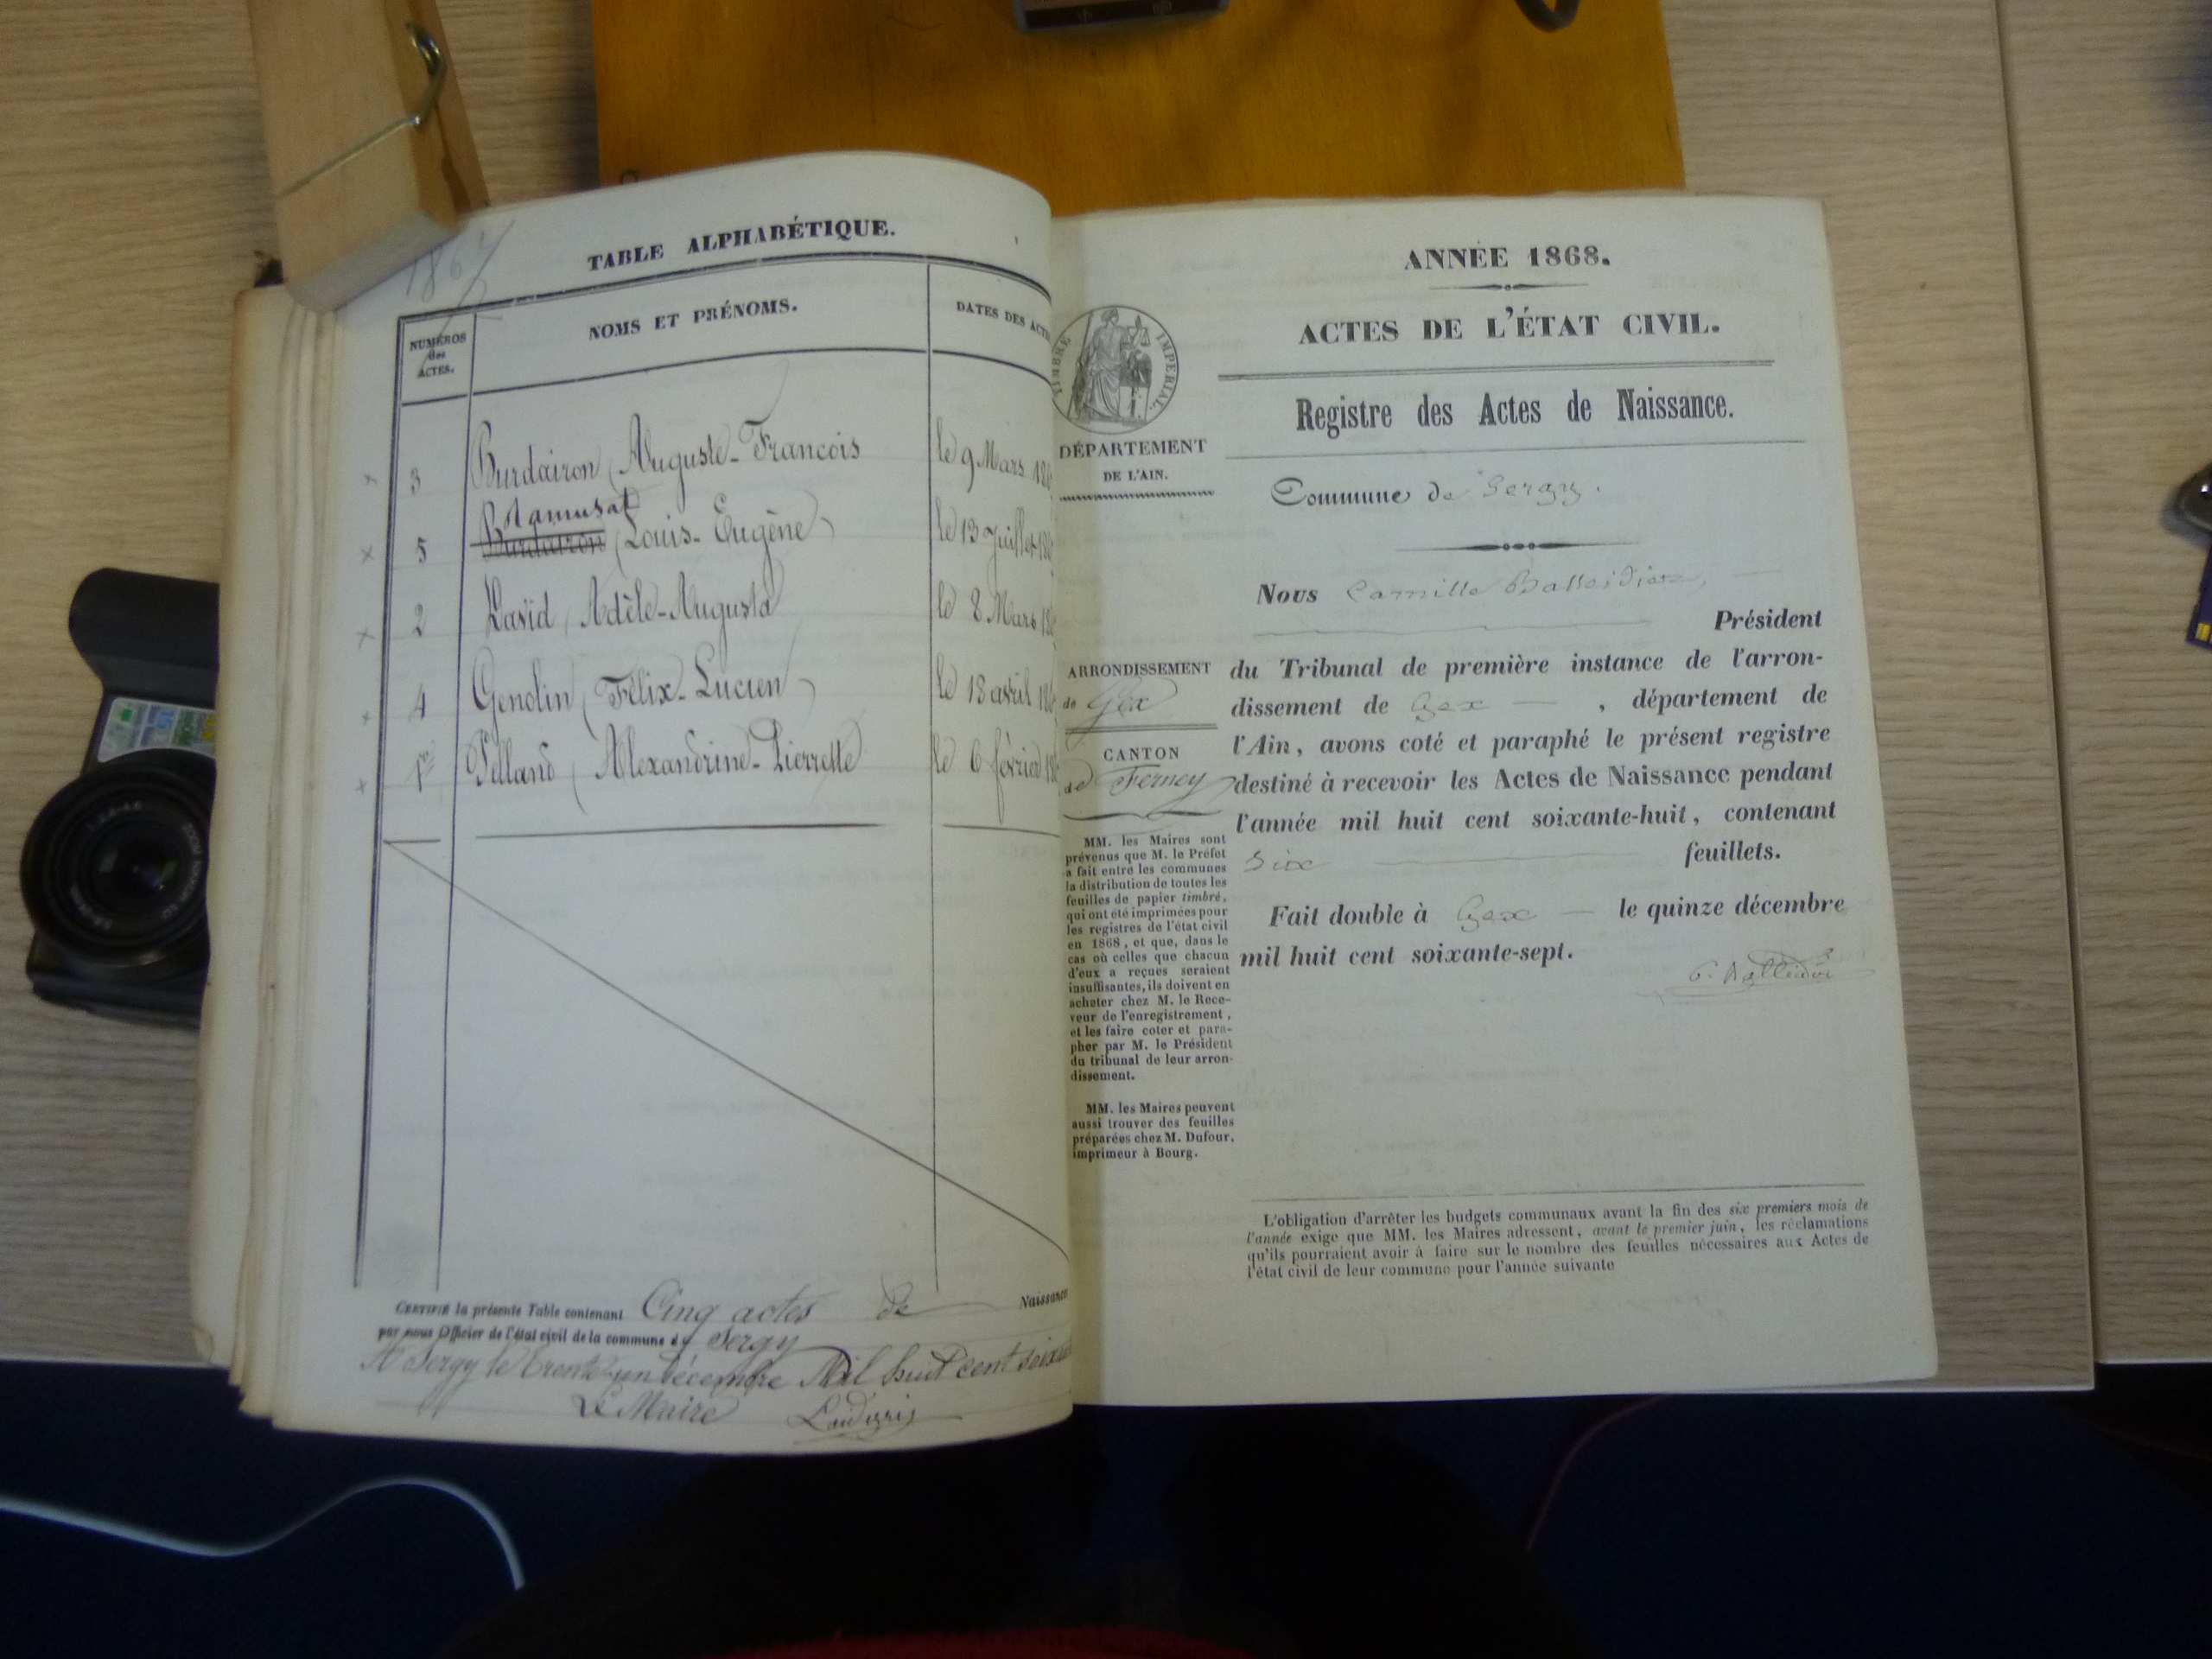 1867
TABLE ALPHABÉTIQUE.
NUMÉROS
des
ACTES.
NOMS ET PRÉNOMS.
DATES DES ACTE
3 Burdairon Auguste-Francois le 9 Mars 186
Ramusat
5 Burdairon Louis-Eugène le 13 Juillet 186
2 David Adèle-Augusta le 8 Mars 186
4 Gendin Félix-Lucien le 18 avril 186
1er Pelland Alexandrine-Pierrette le 6 février 186
CERTIFIÉ la présente Table contenant Cinq actes de Naissance
par nous Officier de l'état civil de la commune de Sergy
A Sergy le trente-un décembre Mil huit cent soixa
Le Maire
ANNÉE 1868.
ACTES DE L'ÉTAT CIVIL.
TIMBRE IMPERIAL.
Registre des Actes de Naissance.
DÉPARTEMENT
DE L'AIN.
Commune de Sergy.
Nous Camille
Président
ARRONDISSEMENT
de Gex
CANTON
de Ferney
du Tribunal de première instance de l'arron-
dissement de Gex , département de
l'Ain, avons coté et paraphé le présent registre
destiné à recevoir les Actes de Naissance pendant
l'année mil huit cent soixante-huit, contenant
six feuillets.
Fait double à Gex le quinze décembre
mil huit cent soixante-sept.
MM. les Maires sont
prévenus que M. le Préfet
a fait entre les communes
la distribution de toutes les
feuilles de papier timbré,
qui ont été imprimées pour
les registres de l'état civil
en 1868, et que, dans le
cas où celles que chacun
d'eux a reçues seraient
insuffisantes, ils doivent en
acheter chez M. le Rece-
veur de l'enregistrement,
et les faire coter et para-
pher par M. le Président
du tribunal de leur arron-
dissement.
MM. les Maires peuvent
aussi trouver des feuilles
préparées chez M. Dufour,
imprimeur à Bourg.
L'obligation d'arrêter les budgets communaux avant la fin des six premiers mois de
l'année exige que MM. les Maires adressent, avant le premier juin, les réclamations
qu'ils pourraient avoir à faire sur le nombre des feuilles nécessaires aux Actes de
l'état civil de leur commune pour l'année suivante